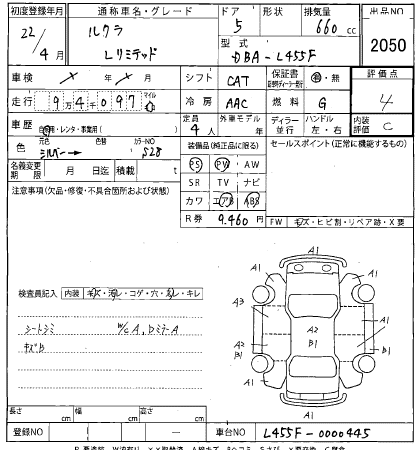 初度登録年月 通称車名・グレード ドア 形状 排気量 出品NO
22/4月 ルクラ Lリミテッド 5 660cc 2050
型式 DBA-L455F
車検 × 年 × 月 シフト CAT 保証書 有・無 評価点
走行 9万4千097 マイル km 冷房 AAC 燃料 G 4
車歴 自家用・レンタ・事業用( ) 定員 4人 外車モデル ディーラー 並行 ハンドル 左・右 内装評価 C
色 元色 シルバー→ 色替 カラーNO S28 装備品(純正品に限る) セールスポイント(正常に機能するもの)
名義変更期限 月 日迄 積載 t PS PW AW
注意事項(欠品・修復・不具合箇所および状態) SR TV ナビ
カワ エアB ABS
R券 9.460円 FW キズ・ヒビ割・リペア跡・X要
A1
A1 A1
A3 A1
A2
B1
A2
B1 A1
B1
A1 A1
A1
検査員記入 内装 キズ・汚レ・コゲ・穴・スレ・キレ
シートシミ W/C A, Dミラー A
キズB
長さ cm 幅 cm 高さ cm
登録NO ― 車台NO L455F-0000445